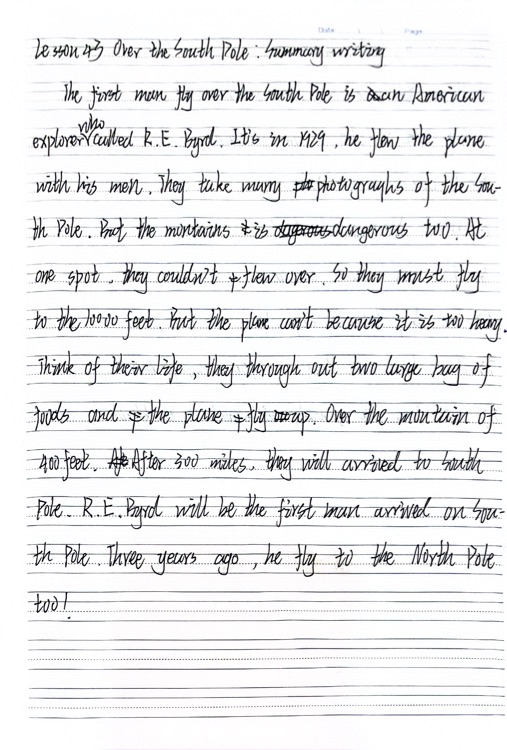 Date Page
Lesson 43 Over the South Pole : Summary writing
The first man fly over the South Pole is an American
explorer who called R.E. Byrd. It's in 1929, he flew the plane
with his men. They take many photographs of the Sou-
th Pole. But the mountains is dangerous two. At
one spot, they couldn't flew over. So they must fly
to the 10000 feet. But the plane can't because it is too heavy.
Think of their life, they through out two large bag of
foods and the plane fly up. Over the mountain of
400 feet. After 300 miles, they will arrived to South
Pole. R.E. Byrd will be the first man arrived on Sou-
th Pole. Three years ago, he fly to the North Pole
too!